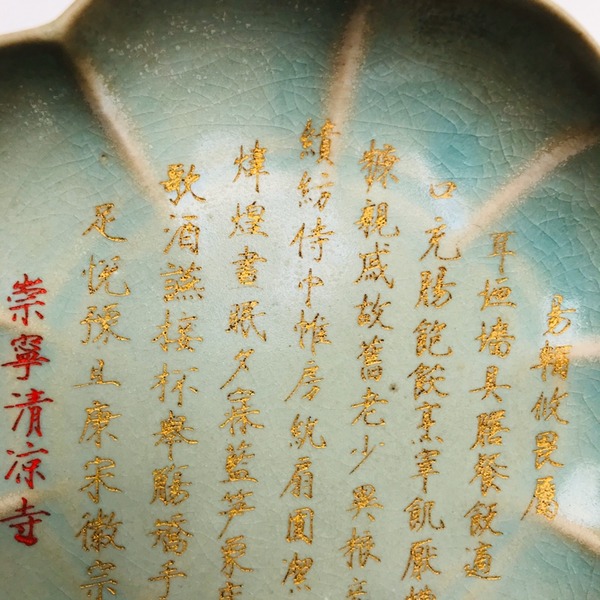 易輶攸畏屬
耳垣墻具膳餐飯適
口充腸飽飫烹宰飢厭
糠親戚故舊老少異粮
績紡侍中帷房紈扇圓潔
煒煌晝眠夕寐藍笋象
歌酒讌接杯舉觴矯手
足悅豫且康宋徽宗
崇寧清凉寺